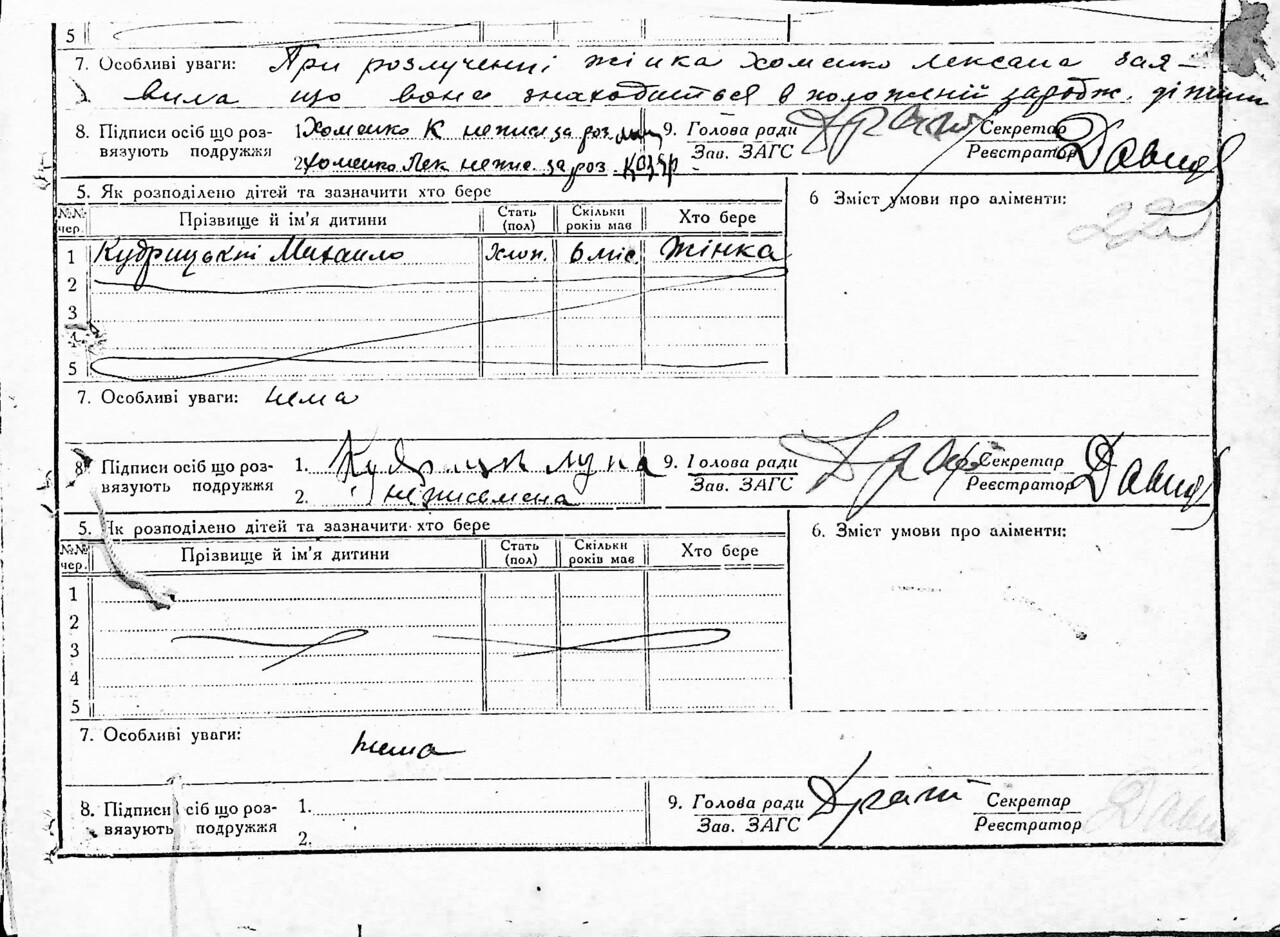 5
7. Особливі уваги: При розлученні жінка Хоменко Лексана зая-
вила що вона знаходиться в положеній зародж. дітини
8. Підписи осіб що роз- 1. Хоменко К неписм за роз. 9. Голова ради Секретар
вязують подружжя 2. Хоменко Лек непис. за роз. Зав. ЗАГС Реєстратор Давид
5. Як розподілено дітей та зазначити хто бере 6 Зміст умови про аліменти:
№№ чер. Прізвище й ім'я дитини Стать (пол) Скільки років має Хто бере
220
1 Кудрицький Михайло хлоп. 6 міс. жінка
2
3
4
5
7. Особливі уваги: нема
8. Підписи осіб що роз- 1. Лука 9. Голова ради Секретар
вязують подружжя 2. неписмена Зав. ЗАГС Реєстратор Давид
5. Як розподілено дітей та зазначити хто бере 6. Зміст умови про аліменти:
№№ чер. Прізвище й ім'я дитини Стать (пол) Скільки років має Хто бере
1
2
3
4
5
7. Особливі уваги: нема
8. Підписи осіб що роз- 1. 9. Голова ради Секретар
вязують подружжя 2. Зав. ЗАГС Реєстратор